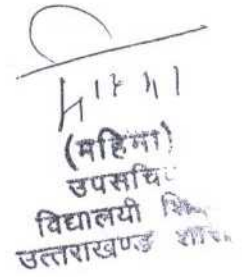 (महिमा)
उपसचि
विद्यालयी शि
उत्तराखण्ड शास